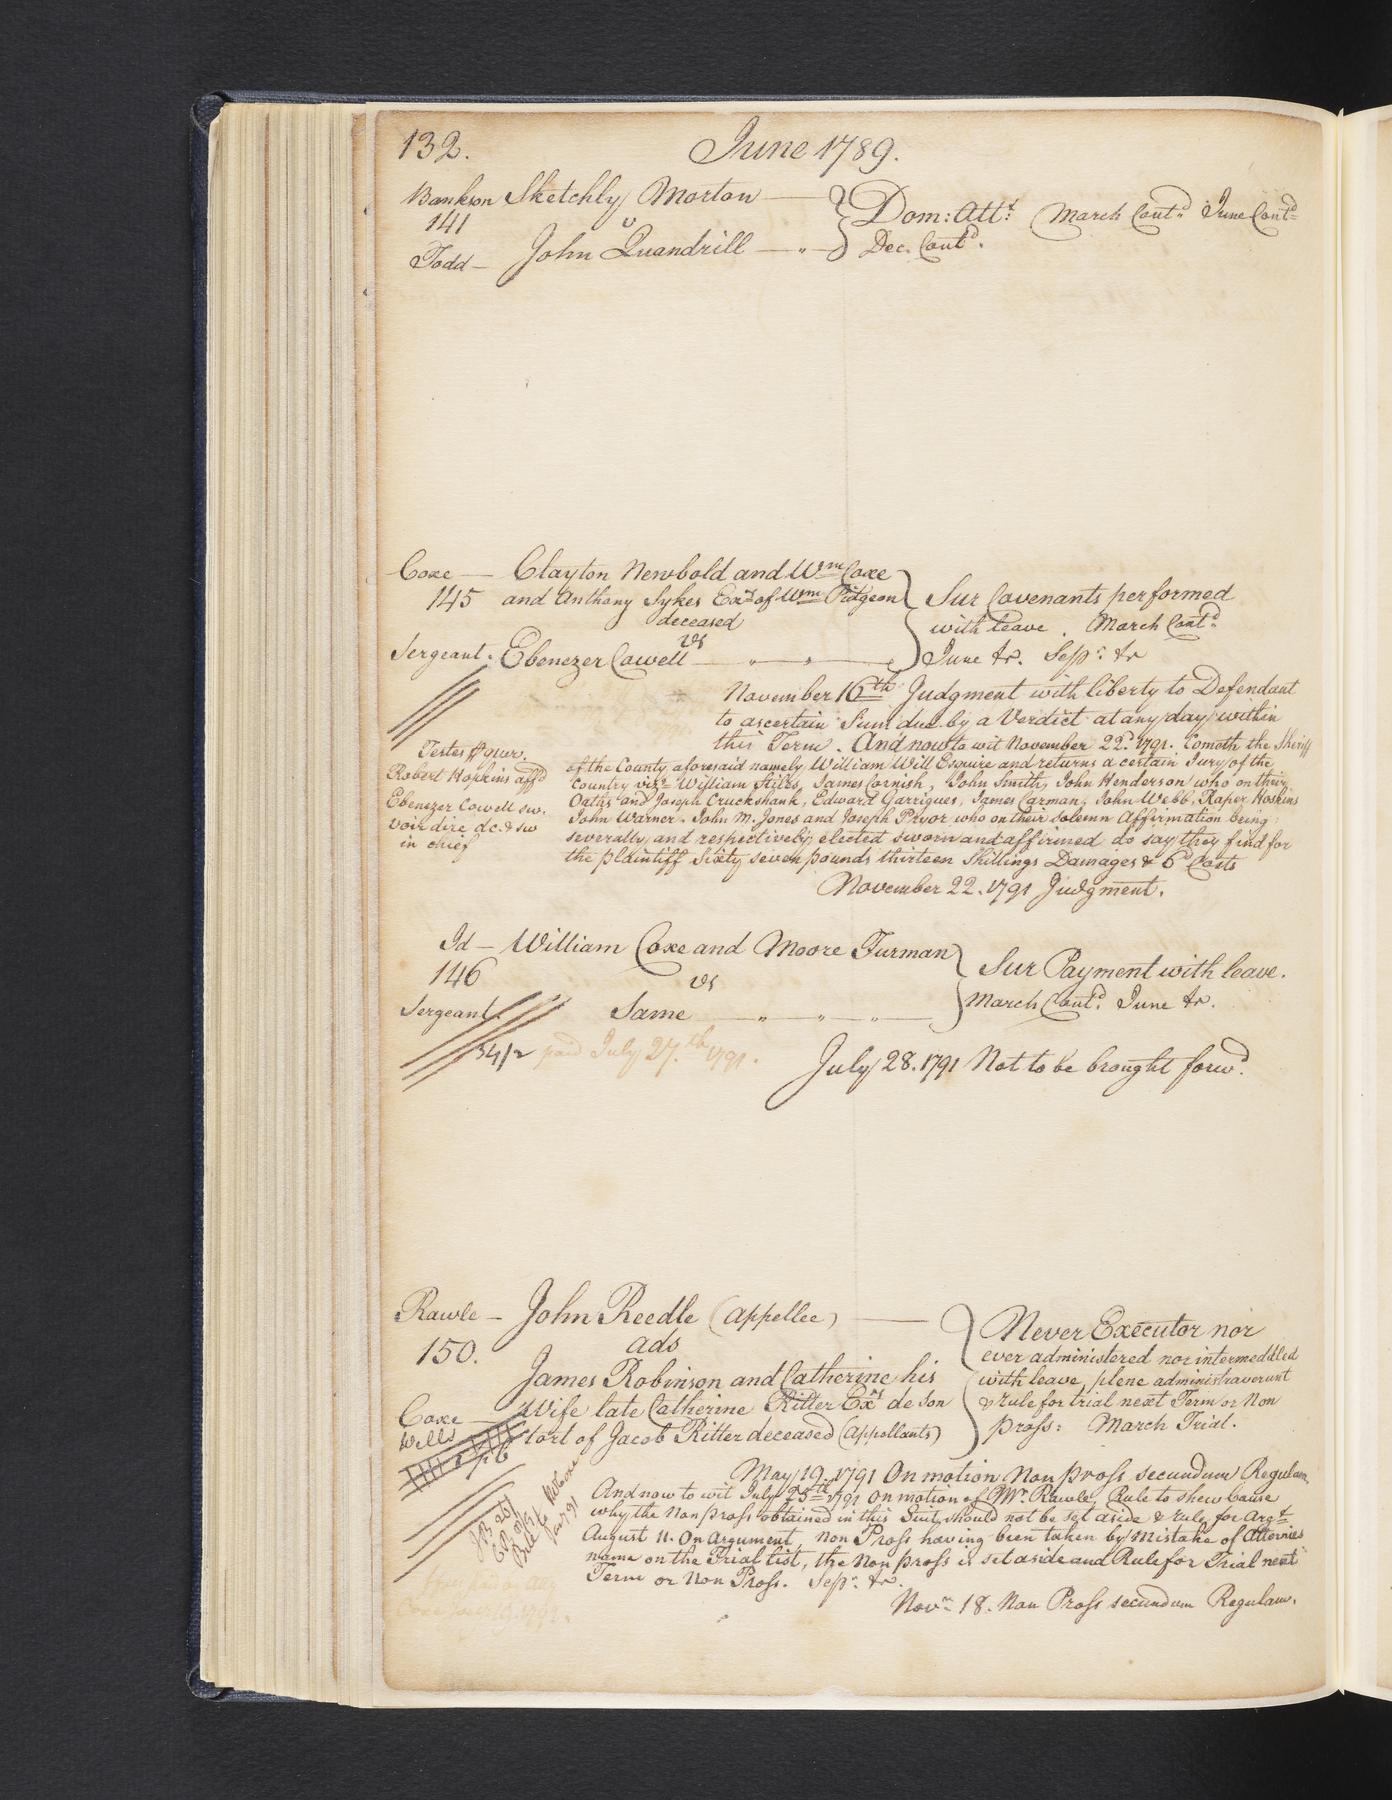 132.
June 1789.
Bankson Sketchly Morton
141
v
Todd John Quandrill
Dom: Att.t March Cont.d June Cont.d
Dec. Cont.d.
Coxe Clayton Newbold and Wm Coxe
145 and Anthony Sykes Ex.rs of Wm Pidgeon
deceased
vs
Sergeant. Ebenezer Cowell
Sur Covenants performed
with leave. March Cont.d
June tr. Sep.r tr
November 16th Judgment with liberty to Defendant
to ascertain Sum due by a Verdict at any day within
this Term. And now to wit November 22.d 1791. Cometh the Sheriff
of the County aforesaid namely William Will Esquire and returns a certain Jury of the
Country viz.t William Stiles, James Cornish, John Smith, John Henderson who on their
Oaths and Joseph Cruckshank, Edward Garrigues, James Carman, John Webb, Raper Hoskins
John Warner. John M. Jones and Joseph Pryor who on their solemn Affirmation being
severally and respectively elected sworn and affirmed do say they find for
the plaintiff Sixty seven pounds thirteen Shillings Damages & 6.d Costs
November 22. 1791 Judgment.
Testes
Robert Hopkins aff.d
Ebenezer Cowell sw.
voir dire &c. & sw
in chief
Id — William Coxe and Moore Furman
146
vs
Sergeant. Same
Sur Payment with leave.
March Cont.d June tr.
34/2 paid July 27.th 1791.
July 28. 1791 Not to be brought forw.d
Rawle — John Reedle (appellee)
150.
ads
James Robinson and Catherine his
Coxe — Wife late Catherine Ritter Ex.rs de son
Wells tort of Jacob Ritter deceased (appellants)
Never Executor nor
ever administered nor intermeddled
with leave, plene administraverunt
& rule for trial next Term or Non
pross: March Trial.
May 19. 1791 On motion Non pross secundum Regulam
And now to wit July 25th 1791 on motion of Mr. Rawle, Rule to shew Cause
why the Non pross obtained in this Suit should not be set aside & rule for Arg.t
August 11. On Argument Non Pross having been taken by mistake of Attornies
name on the Trial list, the Non pross is set aside and Rule for Trial next
Term or Non Pross. Sep.r tr.
Nov.r 18. Non Pross secundum Regulam.